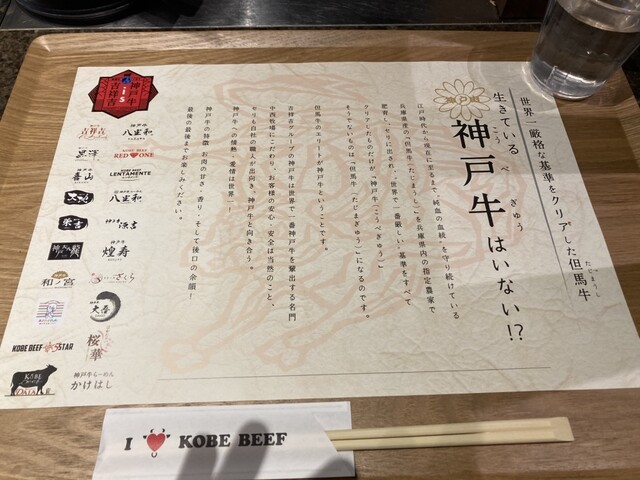 世界一厳格な基準をクリアした但馬牛
たじまうし
生きている
神戸牛はいない!?
こうべぎゅう
江戸時代から現在に至るまで、純血の血統を守り続けている
兵庫県産の「但馬牛(たじまうし)」を兵庫県内の指定農家で
肥育し、セリに出され、世界で一番厳しい基準をすべて
クリアしたものだけが、「神戸牛(こうべぎゅう)」
そうでないものは、「但馬牛(たじまぎゅう)」になるのです。
但馬牛のエリートが神戸牛ということです。
吉祥吉グループの神戸牛は世界で一番神戸牛を輩出する名門
中西牧場にこだわり、お客様の安心・安全は当然のこと、
セリも自然の職人が出向き、神戸牛と向き合う。
神戸牛への情熱・愛情は世界一
神戸牛の特徴、お肉の甘さ・香り・そして後口の余韻!
最後の最後までお楽しみください。
神戸牛
吉祥吉
is
吉祥吉
八坐和
黒澤
KOBE BEEF
RED ONE
善山
KOBE BEEF
LENTAMENTE
八坐和
栄吉
煌寿
和ノ宮
さくら
桜華
KOBE BEEF STAR
KOBE
DATA
神戸牛らーめん
かけはし
I KOBE BEEF